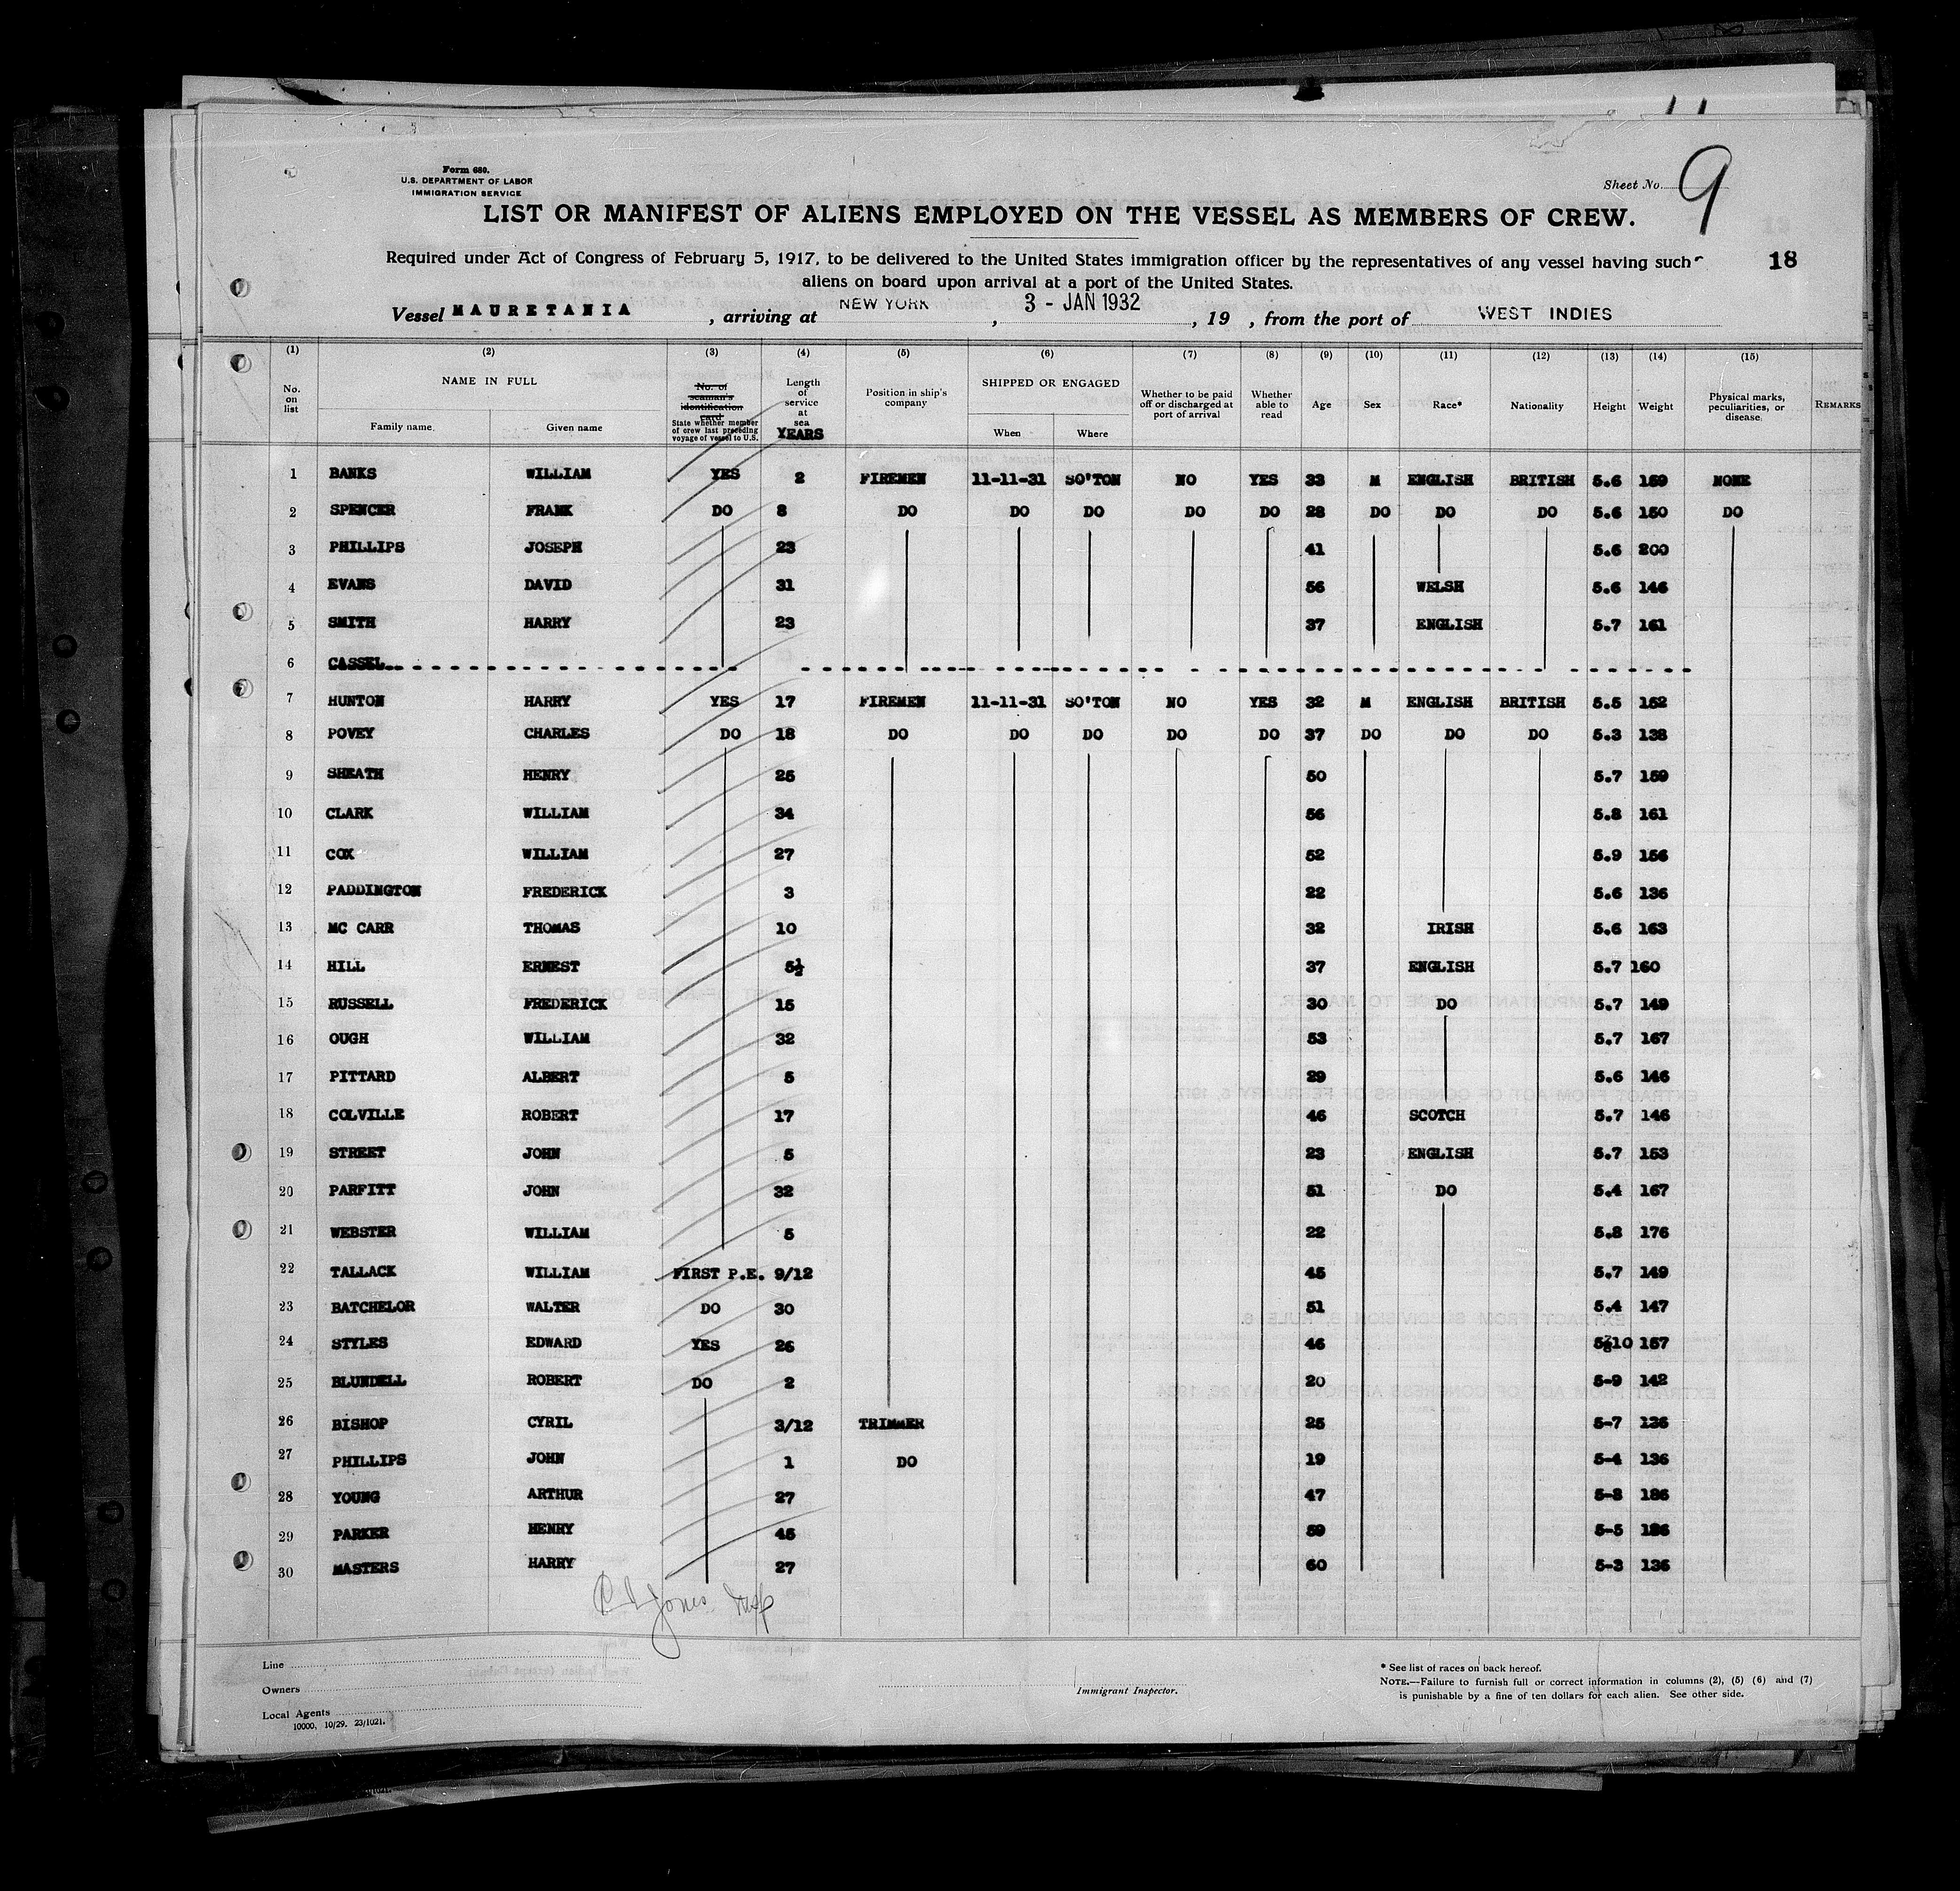 Form 680.
U.S. DEPARTMENT OF LABOR
IMMIGRATION SERVICE
Sheet No. 9
LIST OR MANIFEST OF ALIENS EMPLOYED ON THE VESSEL AS MEMBERS OF CREW.
Required under Act of Congress of February 5, 1917, to be delivered to the United States immigration officer by the representatives of any vessel having such
aliens on board upon arrival at a port of the United States.
18
Vessel MAURETANIA, arriving at NEW YORK, 3 - JAN 1932, 19 , from the port of WEST INDIES
(1) (2) (3) (4) (5) (6) (7) (8) (9) (10) (11) (12) (13) (14) (15)
No. on list NAME IN FULL Family name. Given name No. of seaman's identification card State whether member of crew last preceding voyage of vessel to U.S. Length of service at sea YEARS Position in ship's company SHIPPED OR ENGAGED When Where Whether to be paid off or discharged at port of arrival Whether able to read Age Sex Race* Nationality Height Weight Physical marks, peculiarities, or disease. REMARKS
1 BANKS WILLIAM YES 2 FIREMEN 11-11-31 SO'TON NO YES 33 M ENGLISH BRITISH 5.6 159 NONE
2 SPENCER FRANK DO 8 DO DO DO DO DO 28 DO DO DO 5.6 150 DO
3 PHILLIPS JOSEPH 23 41 5.6 200
4 EVANS DAVID 31 56 WELSH 5.6 146
5 SMITH HARRY 23 37 ENGLISH 5.7 161
6 CASSEL
7 HUNTON HARRY YES 17 FIREMEN 11-11-31 SO'TON NO YES 32 M ENGLISH BRITISH 5.5 152
8 POVEY CHARLES DO 18 DO DO DO DO DO 37 DO DO DO 5.3 138
9 SHEATH HENRY 25 50 5.7 159
10 CLARK WILLIAM 34 56 5.8 161
11 COX WILLIAM 27 52 5.9 156
12 PADDINGTON FREDERICK 3 22 5.6 136
13 MC CARR THOMAS 10 32 IRISH 5.6 163
14 HILL ERNEST 5½ 37 ENGLISH 5.7 160
15 RUSSELL FREDERICK 15 30 DO 5.7 149
16 OUGH WILLIAM 32 53 5.7 167
17 PITTARD ALBERT 5 29 5.6 146
18 COLVILLE ROBERT 17 46 SCOTCH 5.7 146
19 STREET JOHN 5 23 ENGLISH 5.7 153
20 PARFITT JOHN 32 51 DO 5.4 167
21 WEBSTER WILLIAM 5 22 5.8 176
22 TALLACK WILLIAM FIRST P.E. 9/12 45 5.7 149
23 BATCHELOR WALTER DO 30 51 5.4 147
24 STYLES EDWARD YES 26 46 10 157
25 BLUNDELL ROBERT DO 2 20 5-9 142
26 BISHOP CYRIL 3/12 TRIMMER 25 5-7 136
27 PHILLIPS JOHN 1 DO 19 5-4 136
28 YOUNG ARTHUR 27 47 5-8 186
29 PARKER HENRY 45 59 5-5
30 MASTERS HARRY 27 60 5-3 136
Jones Insp
Line
Owners
Local Agents
10000, 10/29. 23/1021.
Immigrant Inspector.
* See list of races on back hereof.
NOTE.—Failure to furnish full or correct information in columns (2), (5) (6) and (7)
is punishable by a fine of ten dollars for each alien. See other side.